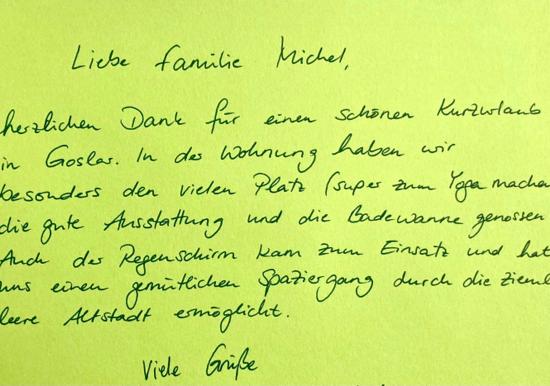 Liebe Familie Michel,
herzlichen Dank für einen schönen Kurzurlaub
in Goslar. In der Wohnung haben wir
besonders den vielen Platz (super zum Yoga machen
die gute Ausstattung und die Badewanne genossen
Auch der Regenschirm kam zum Einsatz und hat
uns einen gemütlichen Spaziergang durch die zieml
leere Altstadt ermöglicht.
Viele Grüße